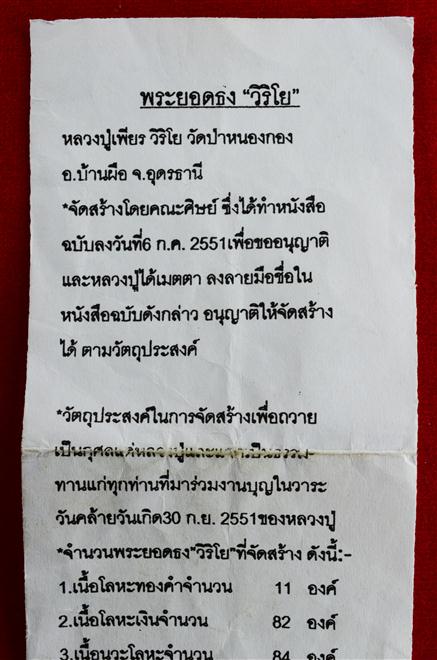 พระยอดธง “วิริโย”
หลวงปู่เพียร วิริโย วัดป่าหนองกอง
อ.บ้านผือ จ.อุดรธานี
*จัดสร้างโดยคณะศิษย์ ซึ่งได้ทำหนังสือ
ฉบับลงวันที่6 ก.ค. 2551เพื่อขออนุญาติ
และหลวงปู่ได้เมตตา ลงลายมือชื่อใน
หนังสือฉบับดังกล่าว อนุญาติให้จัดสร้าง
ได้ ตามวัตถุประสงค์
*วัตถุประสงค์ในการจัดสร้างเพื่อถวาย
เป็นกุศลแด่หลวงปู่และแจกเป็นธรรม-
ทานแก่ทุกท่านที่มาร่วมงานบุญในวาระ
วันคล้ายวันเกิด30 ก.ย. 2551ของหลวงปู่
*จำนวนพระยอดธง"วิริโย"ที่จัดสร้าง ดังนี้:-
1.เนื้อโลหะทองคำจำนวน 11 องค์
2.เนื้อโลหะเงินจำนวน 82 องค์
3.เนื้อนวะโลหะจำนวน 84 องค์